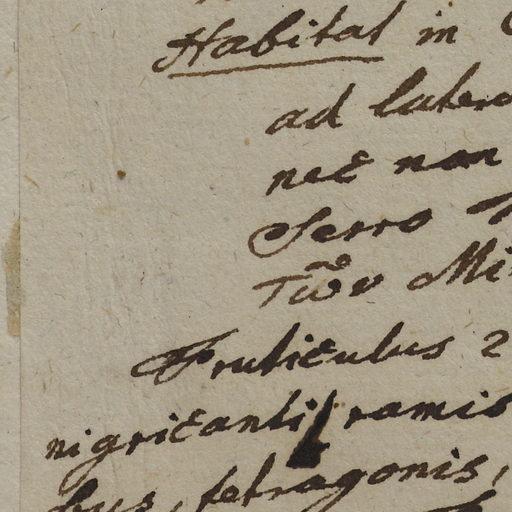 Habitat in
ad latera
nec non
Serro
Fruticulus 2
nigricanti, ramis
bus, tetragonis,